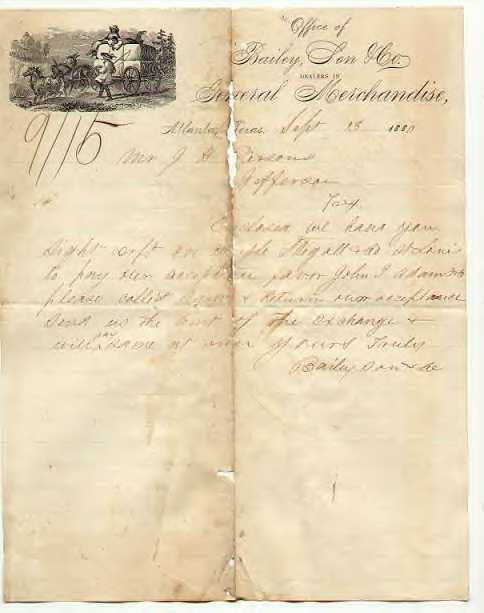 Office of
Bailey, Son & Co.
DEALERS IN
General Merchandise,
Atlanta, Texas, Sept 13 1880
9/15
Mr J H Parsons
Jefferson
Tex
Enclosed we hand you
Sight dft on St Louis
to pay our acceptance favor John
please collect & return our acceptance
Send us the cost of the exchange &
will same at once Yours Truly
Bailey Son & Co